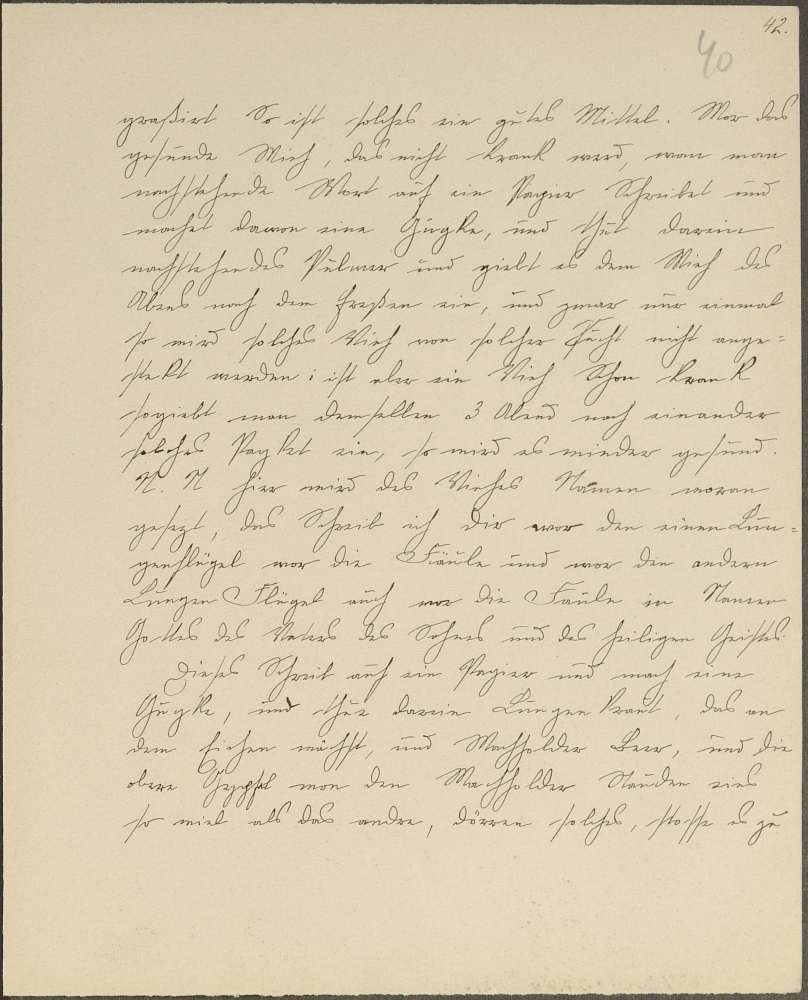 42.
40
graßirt So ist solches ein gutes Mittel. Wor das
gesunde Wich, das nicht krank werd, wan man
nachstehende Wort auf ein Papier Schreibet und
machet dawon eine Gugke, und thut darein
nachstehendes Pulwer und giebt es dem Wieh des
Abens nach dem freßen ein, und zwar nur einmal
so wird solches Vieh von solcher Sucht nicht ange=
stekt werden; ist aber ein Vieh Schon krank
sogiebt man demselben 3 Abend nach einander
solches Pagket ein, so wird es wieder gesund.
N. N hier wird des Viehes Namen woran
gesezt, das Schreib ich Dir wor den einen Lun=
genflügel wor die Fäule und wor den andern
Lungen Flügel auch wor die Faule im Namen
Gottes des Vaters des Sohnes und des heiligen Geistes.
Dieses Schreib auf ein Papier und mach eine
Gugke, und thue darein Lungen kraut, das an
dem Eichen wächst, und Wachholder Beer, und die
obere Gypfel won den Wachholder Stauden eins
so wiel als das andre, dörren solches, stosse es zu